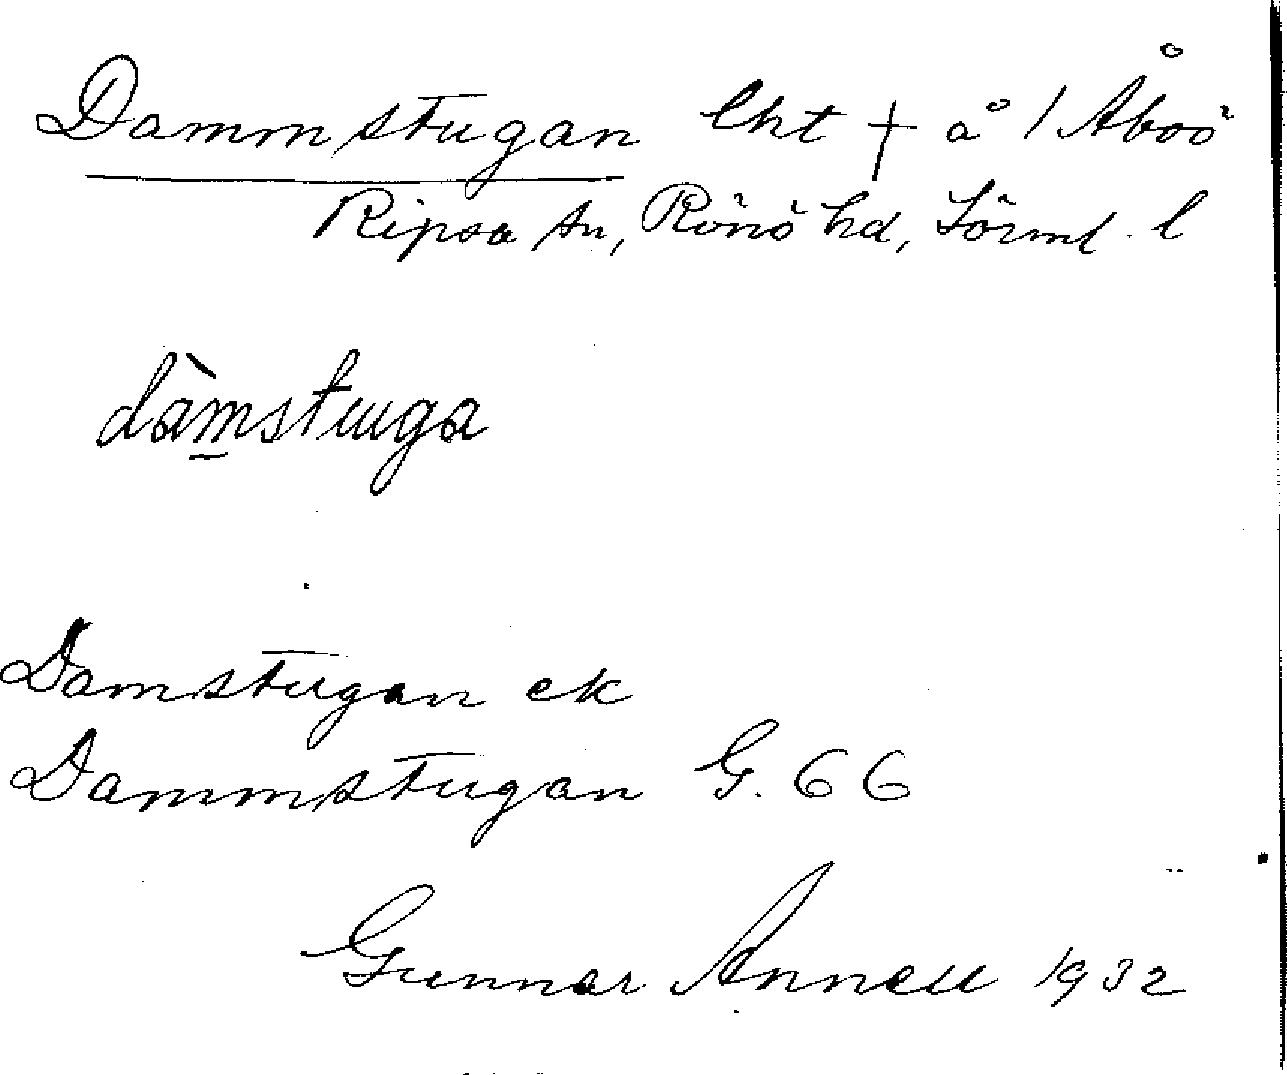 Dammstugan lht † å 1 Åboö
Ripsa sn, Rönö hd, Sörml. l
dàm̲stuga
Damstugan ek
Dammstugan G. 66
Gunnar Annell 1932